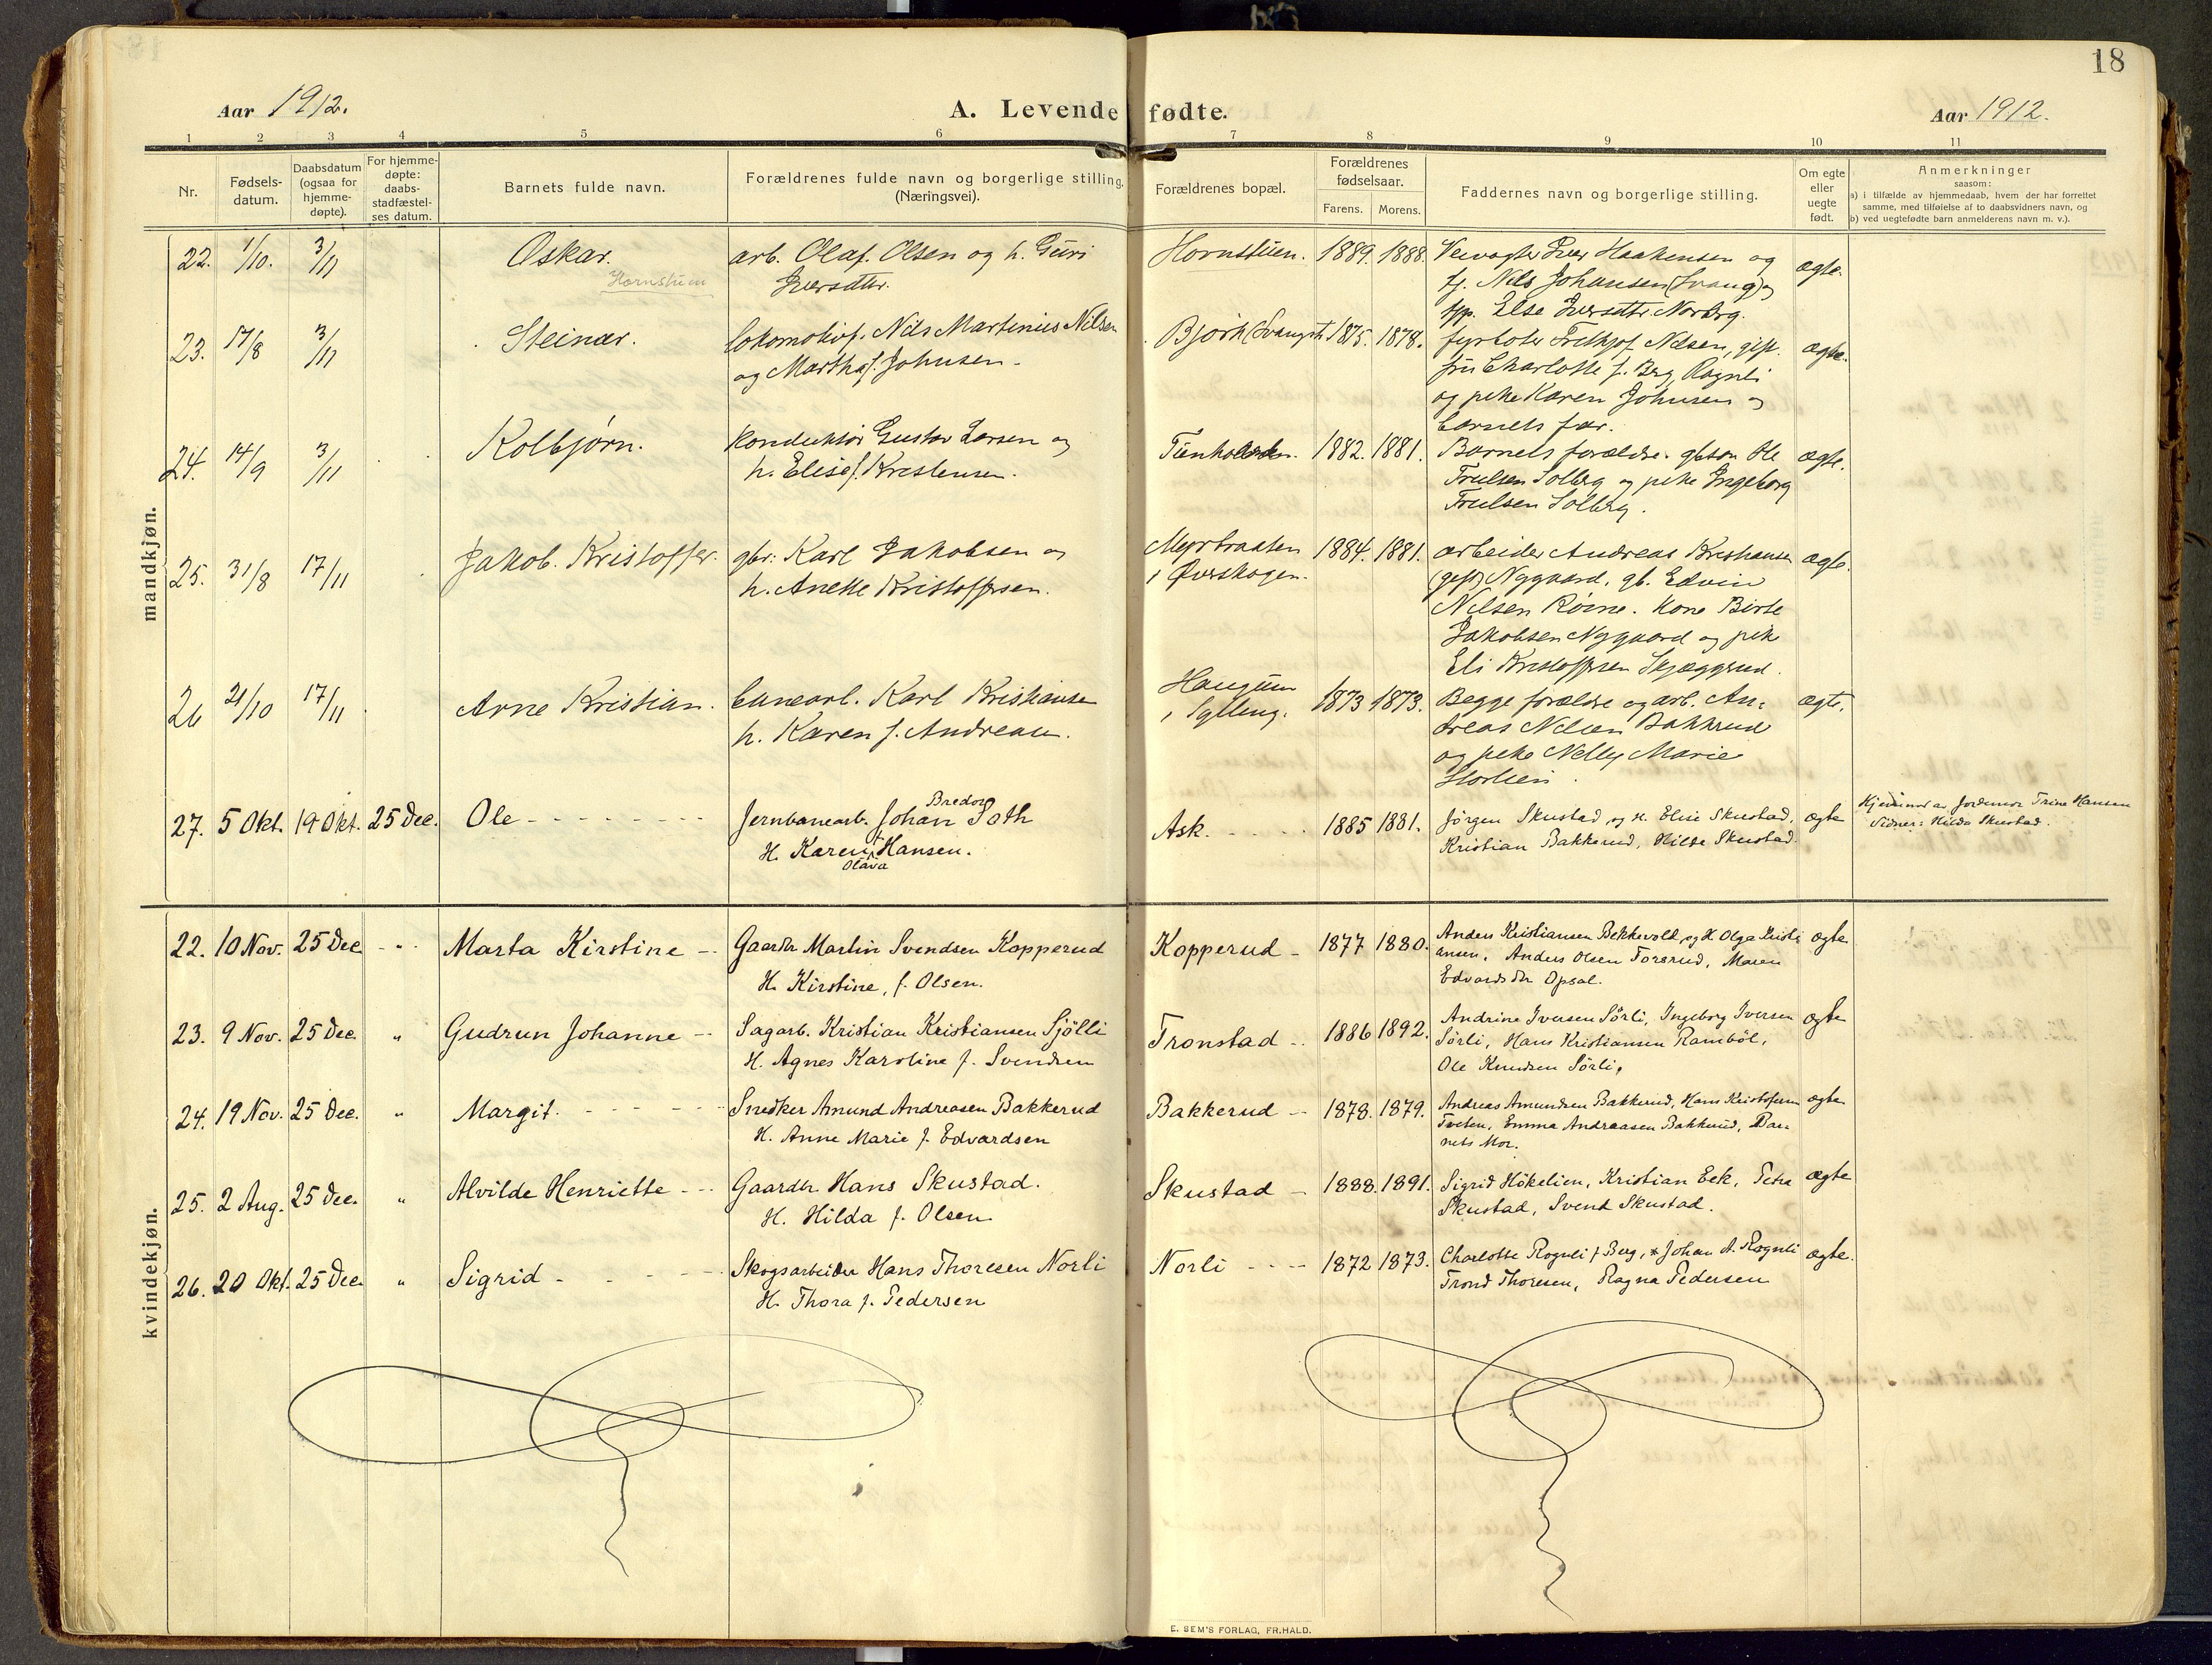 18
Aar 1912.
A. Levende fødte.
Aar 1912.
1 2 3 4 5 6 7 8 9 10 11
Nr.
Fødsels-
datum.
Daabsdatum
(ogsaa for
hjemme-
døpte).
For hjemme-
døpte:
daabs-
stadfæstel-
ses datum.
Barnets fulde navn.
Forældrenes fulde navn og borgerlige stilling.
(Næringsvei).
Forældrenes bopæl.
Forældrenes
fødselsaar.
Farens. Morens.
Faddernes navn og borgerlige stilling.
Om egte
eller
uegte
født.
Anmerkninger
saasom:
a) i tilfælde av hjemmedaab, hvem der har forrettet
samme, med tilføielse af to daabsvidners navn, og
b) ved uegtefødte barn anmelderens navn m. v.).
mandkjøn.
22. 1/10. 3/11 Oskar.
Hornstuen
arb. Olaf Olsen og h. Guri
Iversdtr.
Hornstuen. 1889. 1888.
Veivogter Iver Haakensen og
Nils Johansen (Svang) og
Else Iversdtr. Norbrg.
ægte.
23. 17/8 3/11 Steinar.
lokomotivf. Nils Martinius Nilsen
og Martha f. Johnsen.
Bjørk (Svangstr. 1875. 1878.
fyrbøter Frithjof Nilsen, gift.
fru Charlotte f. Berg, Rognli
og pike Karen Johnsen og
barnets far.
ægte.
24. 14/9 3/11 Kolbjørn.
Konduktør Gustav Larsen og
h. Elise f. Kristensen.
1882. 1881.
Barnets forældre. gbsøn Ole
Truelsen Solberg og pike Ingeborg
Truelsen Solberg.
ægte.
25. 31/8 17/11 Jakob Kristoffer.
gbr: Karl Jakobsen og
h. Anette Kristoffersen.
Myrbraaten
i Øverskogen.
1884. 1881.
arbeider Andreas Kristiansen
(gift) Nygaard, gb. Edvin
Nilsen Röine. Kone Birte
Jakobsen Nygaard og pike
Eli Kristoffersen Skjæggerud.
ægte.
26 21/10 17/11 Arne Kristian.
banearb. Karl Kristiansen
h. Karen f. Andreasen.
Haugum
i Sylling.
1873 1873.
Begge forældre og arb. An-
dreas Nilsen Bakkerud
og pike Nelly Marie
Storlien.
ægte.
27. 5 Okt. 19 Okt. 25 Dec. Ole - - - - - - - -
Bredo
Jernbanearb. Johan Sath
H. Karen Hansen.
Olava
Ask. - - - - 1885 1881.
Jørgen Skustad og H. Elise Skustad,
Kristian Bakkerud, Hilda Skustad.
ægte
Hjemmed. av Jordemor Trine Hansen
Vidner: Hilda Skustad.
kvindekjøn.
22. 10 Nov. 25 Dec. - " - Marta Kirstine -
Gaardbr. Martin Svendsen Kopperud
H. Kirstine, f. Olsen.
Kopperud - 1877 1880.
Anders Kristiansen Bekkevold, og H. Olga Kristi-
ansen. Anders Olsen Forsrud, Maren
Edvardsdtr Opsal.
ægte
23. 9 Nov. 25 Dec. " Gudrun Johanne -
Sagarb. Kristian Kristiansen Sjölli
H. Agnes Karoline f. Svendsen
Tronstad - 1886 1892.
Andrine Iversen Sörli, Ingeborg Iversen
Sörli, Hans Kristiansen Ramböl,
Ole Knudsen Sörli.
ægte
24. 19 Nov. 25 Dec. " Margit. - - - - -
Snedker Amund Andreasen Bakkerud
H. Anne Marie f. Edvardsen
Bakkerud - 1878. 1879.
Andreas Amundsen Bakkerud, Hans Kristofersen
Tveten, Emma Andreasen Bakkerud, Bar-
nets Mor.
ægte
25. 2 Aug. 25 Dec. " Alvilde Henriette - -
Gaardbr. Hans Skustad.
H. Hilda f. Olsen.
Skustad - 1888. 1891.
Sigrid Hökelien, Kristian Eek, Petra
Skustad, Svend Skustad.
ægte
26. 20 Okt. 25 Dec. " Sigrid - - - - -
Skogsarbeider Hans Thoresen Norli
H. Thora f. Pedersen
Norli - - - 1872 1873.
Charlotte Rognli f Berg, Johan A. Rognli
Trond Thoresen, Ragna Pedersen
ægte.
E. SEM'S FORLAG, FR.HALD.